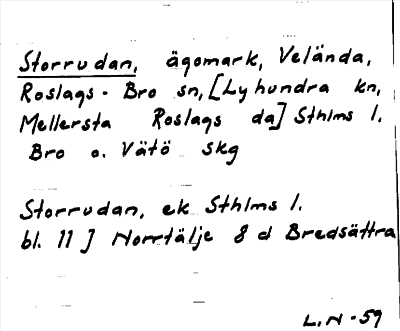 Storrudan, ägomark, Velända,
Roslags-Bro sn, [Lyhundra kn,
Mellersta Roslags da] Sthlms l.
Bro o. Vätö skg
Storrudan, ek Sthlms l.
bl. 11] Norrtälje 8 d Bredsättra
L.N-59